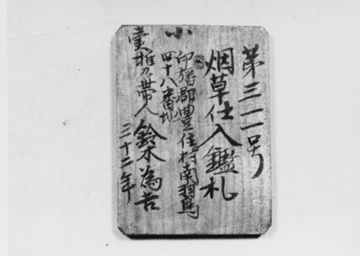 第三一一号
烟草仕入鑑札
小
印旛郡豊住村南羽鳥
四十八番地
鈴木為吉
三十二年